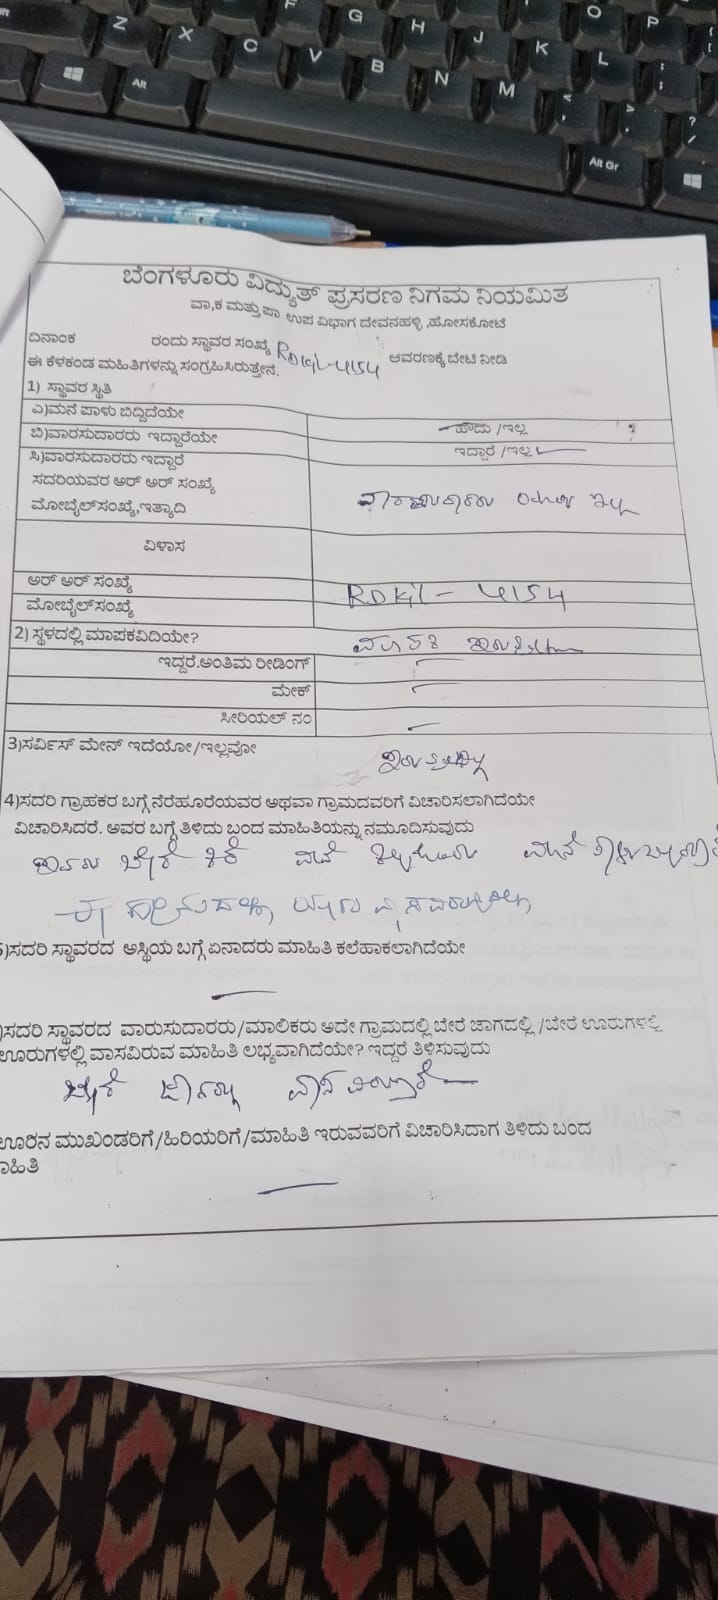 Z X C V B N M
F G H J K L O P
Alt
Alt Gr
ಬೆಂಗಳೂರು ವಿದ್ಯುತ್ ಪ್ರಸರಣ ನಿಗಮ ನಿಯಮಿತ
ವಾ,ಕ ಮತ್ತು ಪಾ ಉಪ ವಿಭಾಗ ದೇವನಹಳ್ಳಿ ,ಹೋಸಕೋಟೆ
ದಿನಾಂಕ ರಂದು ಸ್ಥಾವರ ಸಂಖ್ಯೆ RDGL-4154 ಆವರಣಕ್ಕೆ ಬೇಟಿ ನೀಡಿ
ಈ ಕೆಳಕಂಡ ಮಹಿತಿಗಳನ್ನು ಸಂಗ್ರಹಿಸಿರುತ್ತೇನೆ.
1) ಸ್ಥಾವರ ಸ್ಥಿತಿ
ಎ)ಮನೆ ಪಾಳು ಬಿದ್ದಿದೆಯೇ ಹೌದು /ಇಲ್ಲ
ಬಿ)ವಾರಸುದಾರರು ಇದ್ದಾರೆಯೇ ಇದ್ದಾರೆ /ಇಲ್ಲ
ಸಿ)ವಾರಸುದಾರರು ಇದ್ದಾರೆ
ಸದರಿಯವರ ಆರ್ ಆರ್ ಸಂಖ್ಯೆ
ಮೋಬೈಲ್‌ಸಂಖ್ಯೆ,ಇತ್ಯಾದಿ ವಾರಸುದಾರರು ಇಲ್ಲ
ವಿಳಾಸ
ಆರ್ ಆರ್ ಸಂಖ್ಯೆ RDGL - 4154
ಮೋಬೈಲ್‌ಸಂಖ್ಯೆ
2) ಸ್ಥಳದಲ್ಲಿ ಮಾಪಕವಿದಿಯೇ? ಮಾಪಕ ಇರುವುದಿಲ್ಲ
ಇದ್ದರೆ.ಅಂತಿಮ ರೀಡಿಂಗ್
ಮೇಕ್
ಸೀರಿಯಲ್ ನಂ
3)ಸರ್ವಿಸ್ ಮೇನ್ ಇದೆಯೋ/ಇಲ್ಲವೋ ಇರುವುದಿಲ್ಲ
4)ಸದರಿ ಗ್ರಾಹಕರ ಬಗ್ಗೆ ನೆರೆಹೊರೆಯವರ ಅಥವಾ ಗ್ರಾಮದವರಿಗೆ ವಿಚಾರಿಸಲಾಗಿದೆಯೇ
ವಿಚಾರಿಸಿದರೆ. ಅವರ ಬಗ್ಗೆ ತಿಳಿದು ಬಂದ ಮಾಹಿತಿಯನ್ನು ನಮೂದಿಸುವುದು
ಬೇರೆ ಮನೆ
ಈ ಯಾರು ವಾಸವಿರುವುದಿಲ್ಲ
)ಸದರಿ ಸ್ಥಾವರದ ಅಸ್ಥಿಯ ಬಗ್ಗೆ ಏನಾದರು ಮಾಹಿತಿ ಕಲೆಹಾಕಲಾಗಿದೆಯೇ
)ಸದರಿ ಸ್ಥಾವರದ ವಾರುಸುದಾರರು/ಮಾಲಿಕರು ಅದೇ ಗ್ರಾಮದಲ್ಲಿ ಬೇರೆ ಜಾಗದಲ್ಲಿ /ಬೇರೆ ಊರುಗಳಲ್ಲಿ
ಊರುಗಳಲ್ಲಿ ವಾಸವಿರುವ ಮಾಹಿತಿ ಲಭ್ಯವಾಗಿದೆಯೇ? ಇದ್ದರೆ ತಿಳಿಸುವುದು
ಬೇರೆ ಜಾಗದಲ್ಲಿ ವಾಸವಿರುತ್ತಾರೆ
ಊರಿನ ಮುಖಂಡರಿಗೆ/ಹಿರಿಯರಿಗೆ/ಮಾಹಿತಿ ಇರುವವರಿಗೆ ವಿಚಾರಿಸಿದಾಗ ತಿಳಿದು ಬಂದ
ಾಹಿತಿ